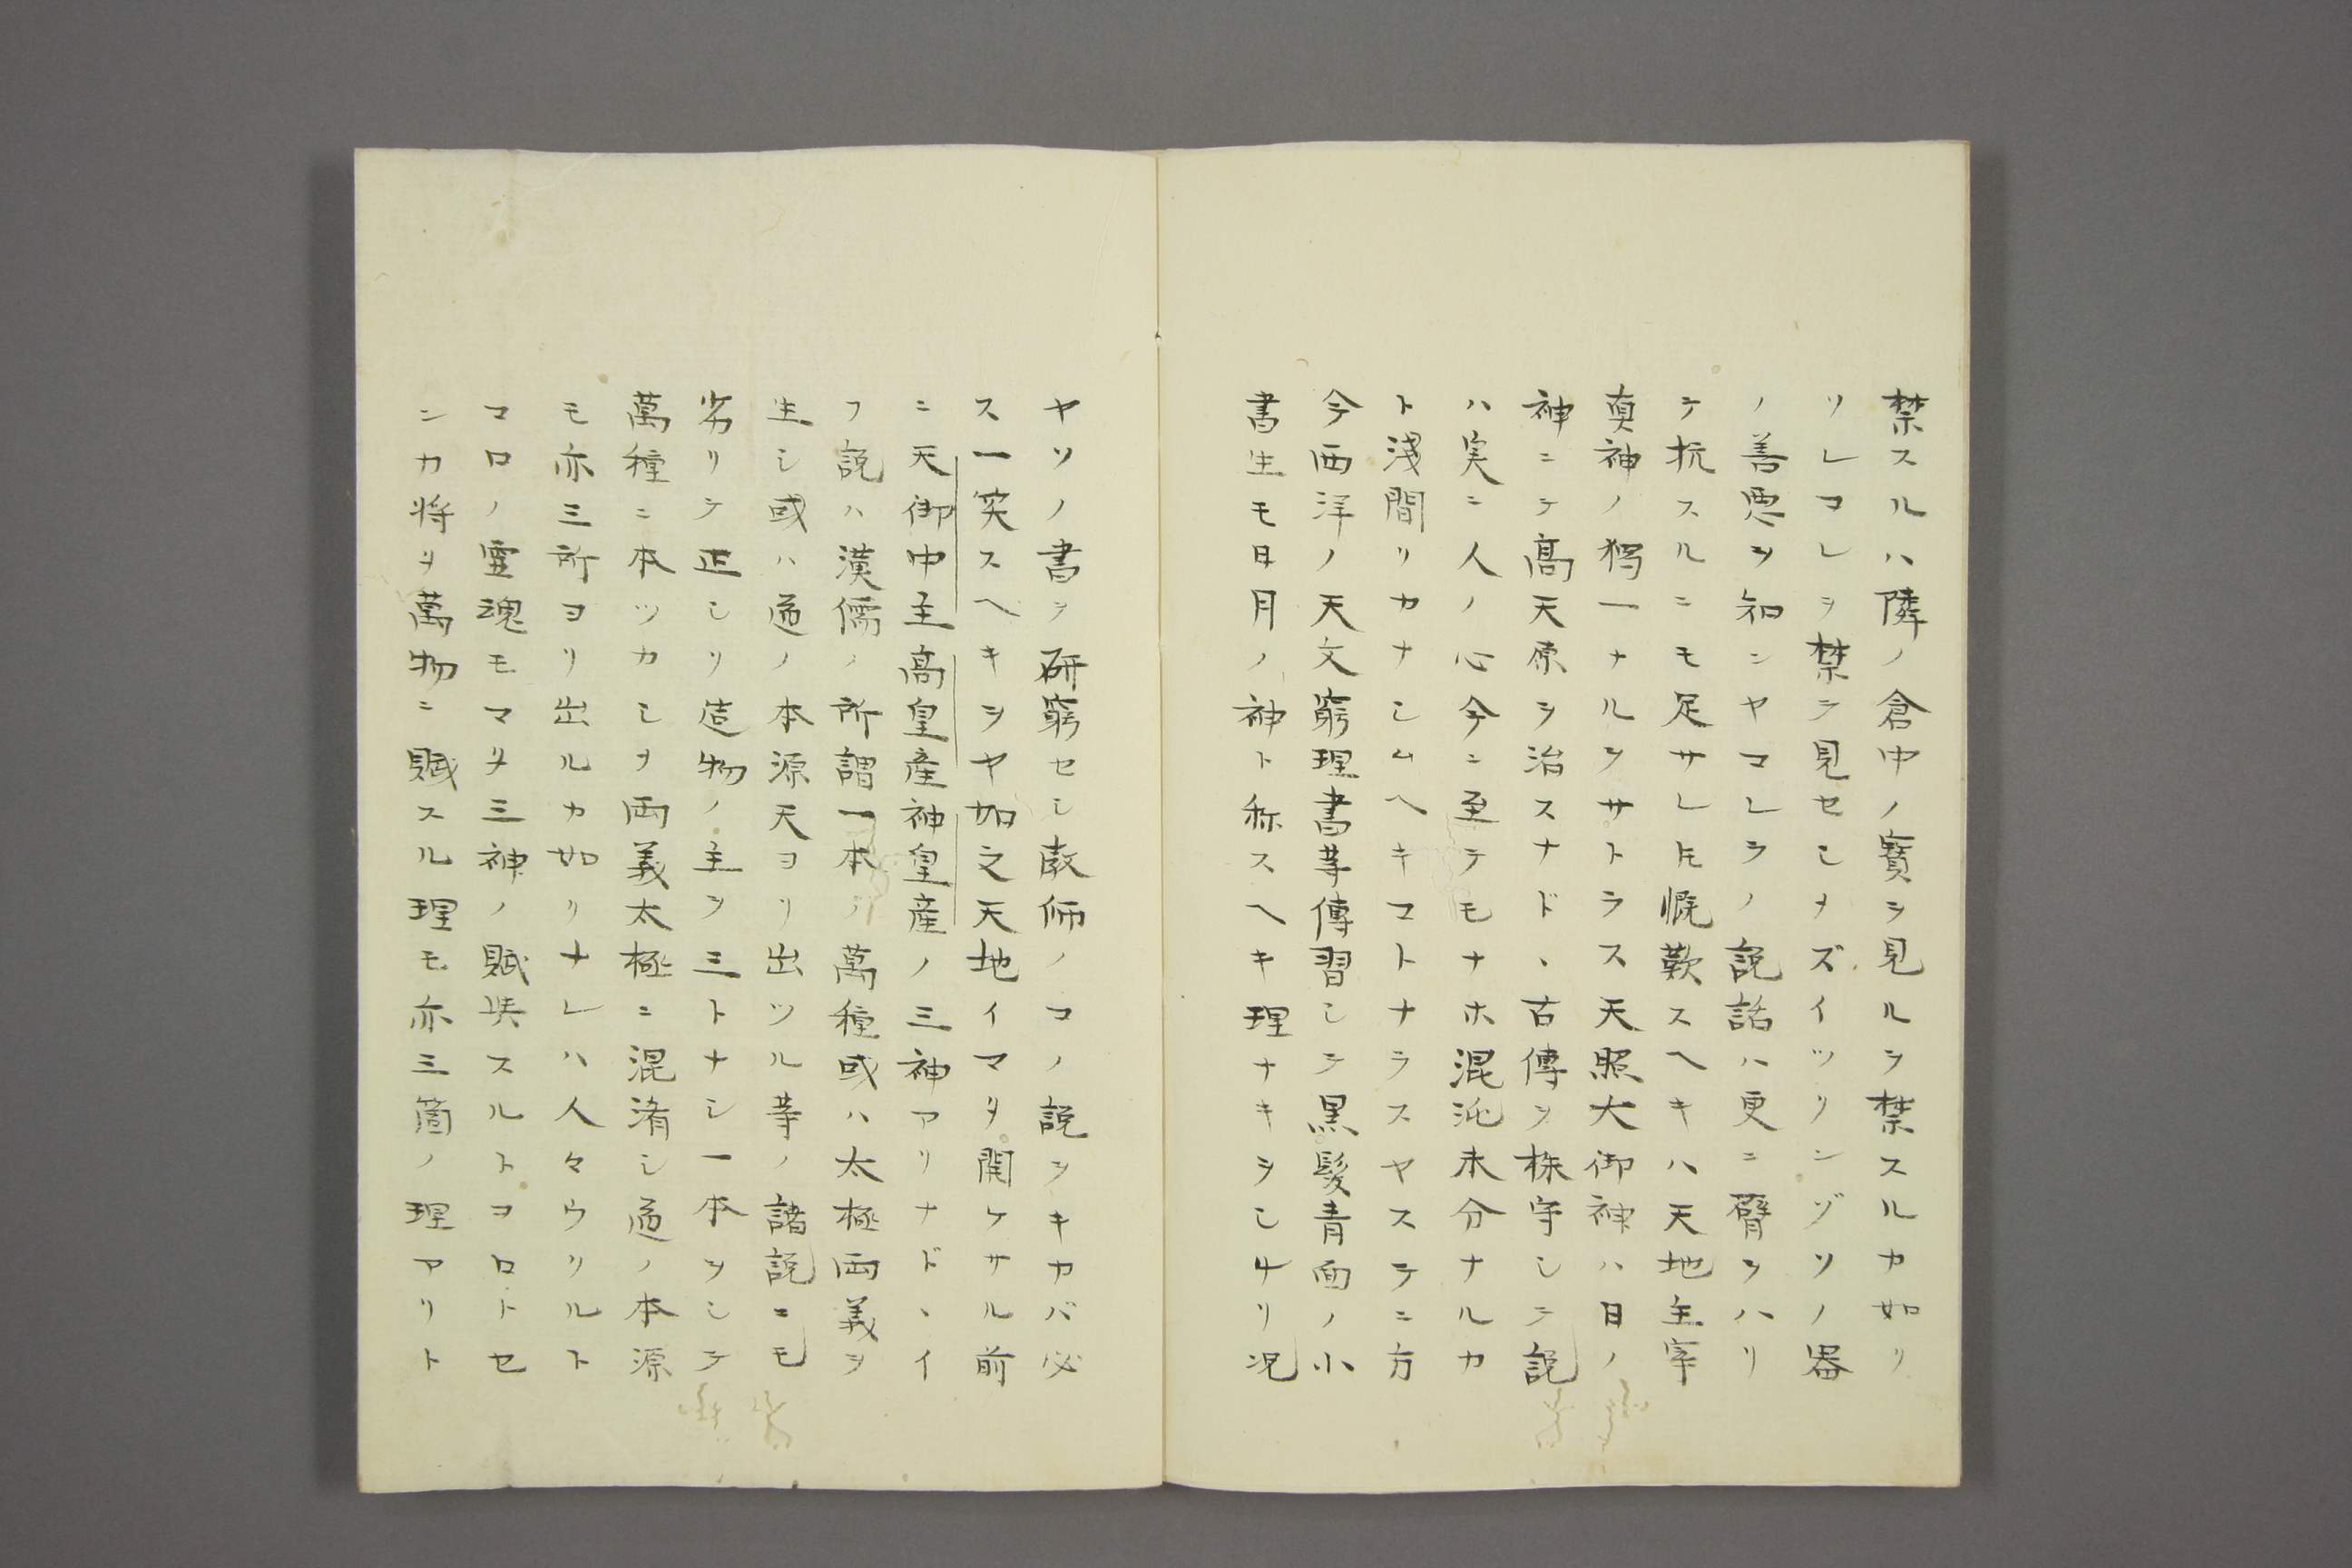 禁スルハ隣ノ倉中ノ寳ヲ見ルヲ禁スルカ如リ
ソレコレヲ禁テ見セシメズイツリンゾソノ器
ノ善悪ヲ知ンヤコレラノ説話ハ更ニ臂ヲハリ
テ抗スルニモ足サレ𪜈慨歎スヘキハ天地主宰
真神ノ独一ナルヲサトラス天照大御神ハ日ノ
神ニテ高天原ヲ治スナド、古傳ヲ株守シテ説
ハ実ニ人ノ心今ニ至テモナホ混沌未分ナルカ
ト淺間リカナシムヘキコトナラスヤステニ方
今西洋ノ天文窮理書等傳習シテ黒髪青面ノ小
書生モ日月ノ神ト称スヘキ理ナキヲシサリ况
ヤソノ書ヲ研窮セシ教師ノコノ説ヲキカバ必
ス一笑スヘキヲヤ如之天地イマタ開ケサル前
ニ天御中主高皇産神皇産ノ三神アリナド、イ
フ説ハ漢儒ノ所謂一本ノ萬種或ハ太極両義ヲ
生シ或ハ道ノ本源天ヨリ出ツル等ノ諸説ニモ
劣リテ正シリ造物ノ主ヲ三トナシ一本ヲシテ
萬種ニ本ツカシヲ両義太極ニ混淆シ道ノ本源
モ亦三所ヨリ出ルカ如リナレハ人々ウリルト
コロノ霊魂モマタ三神ノ賦與スルトコロトセ
ンカ将タ萬物ニ賦スル理モ亦三箇ノ理アリト